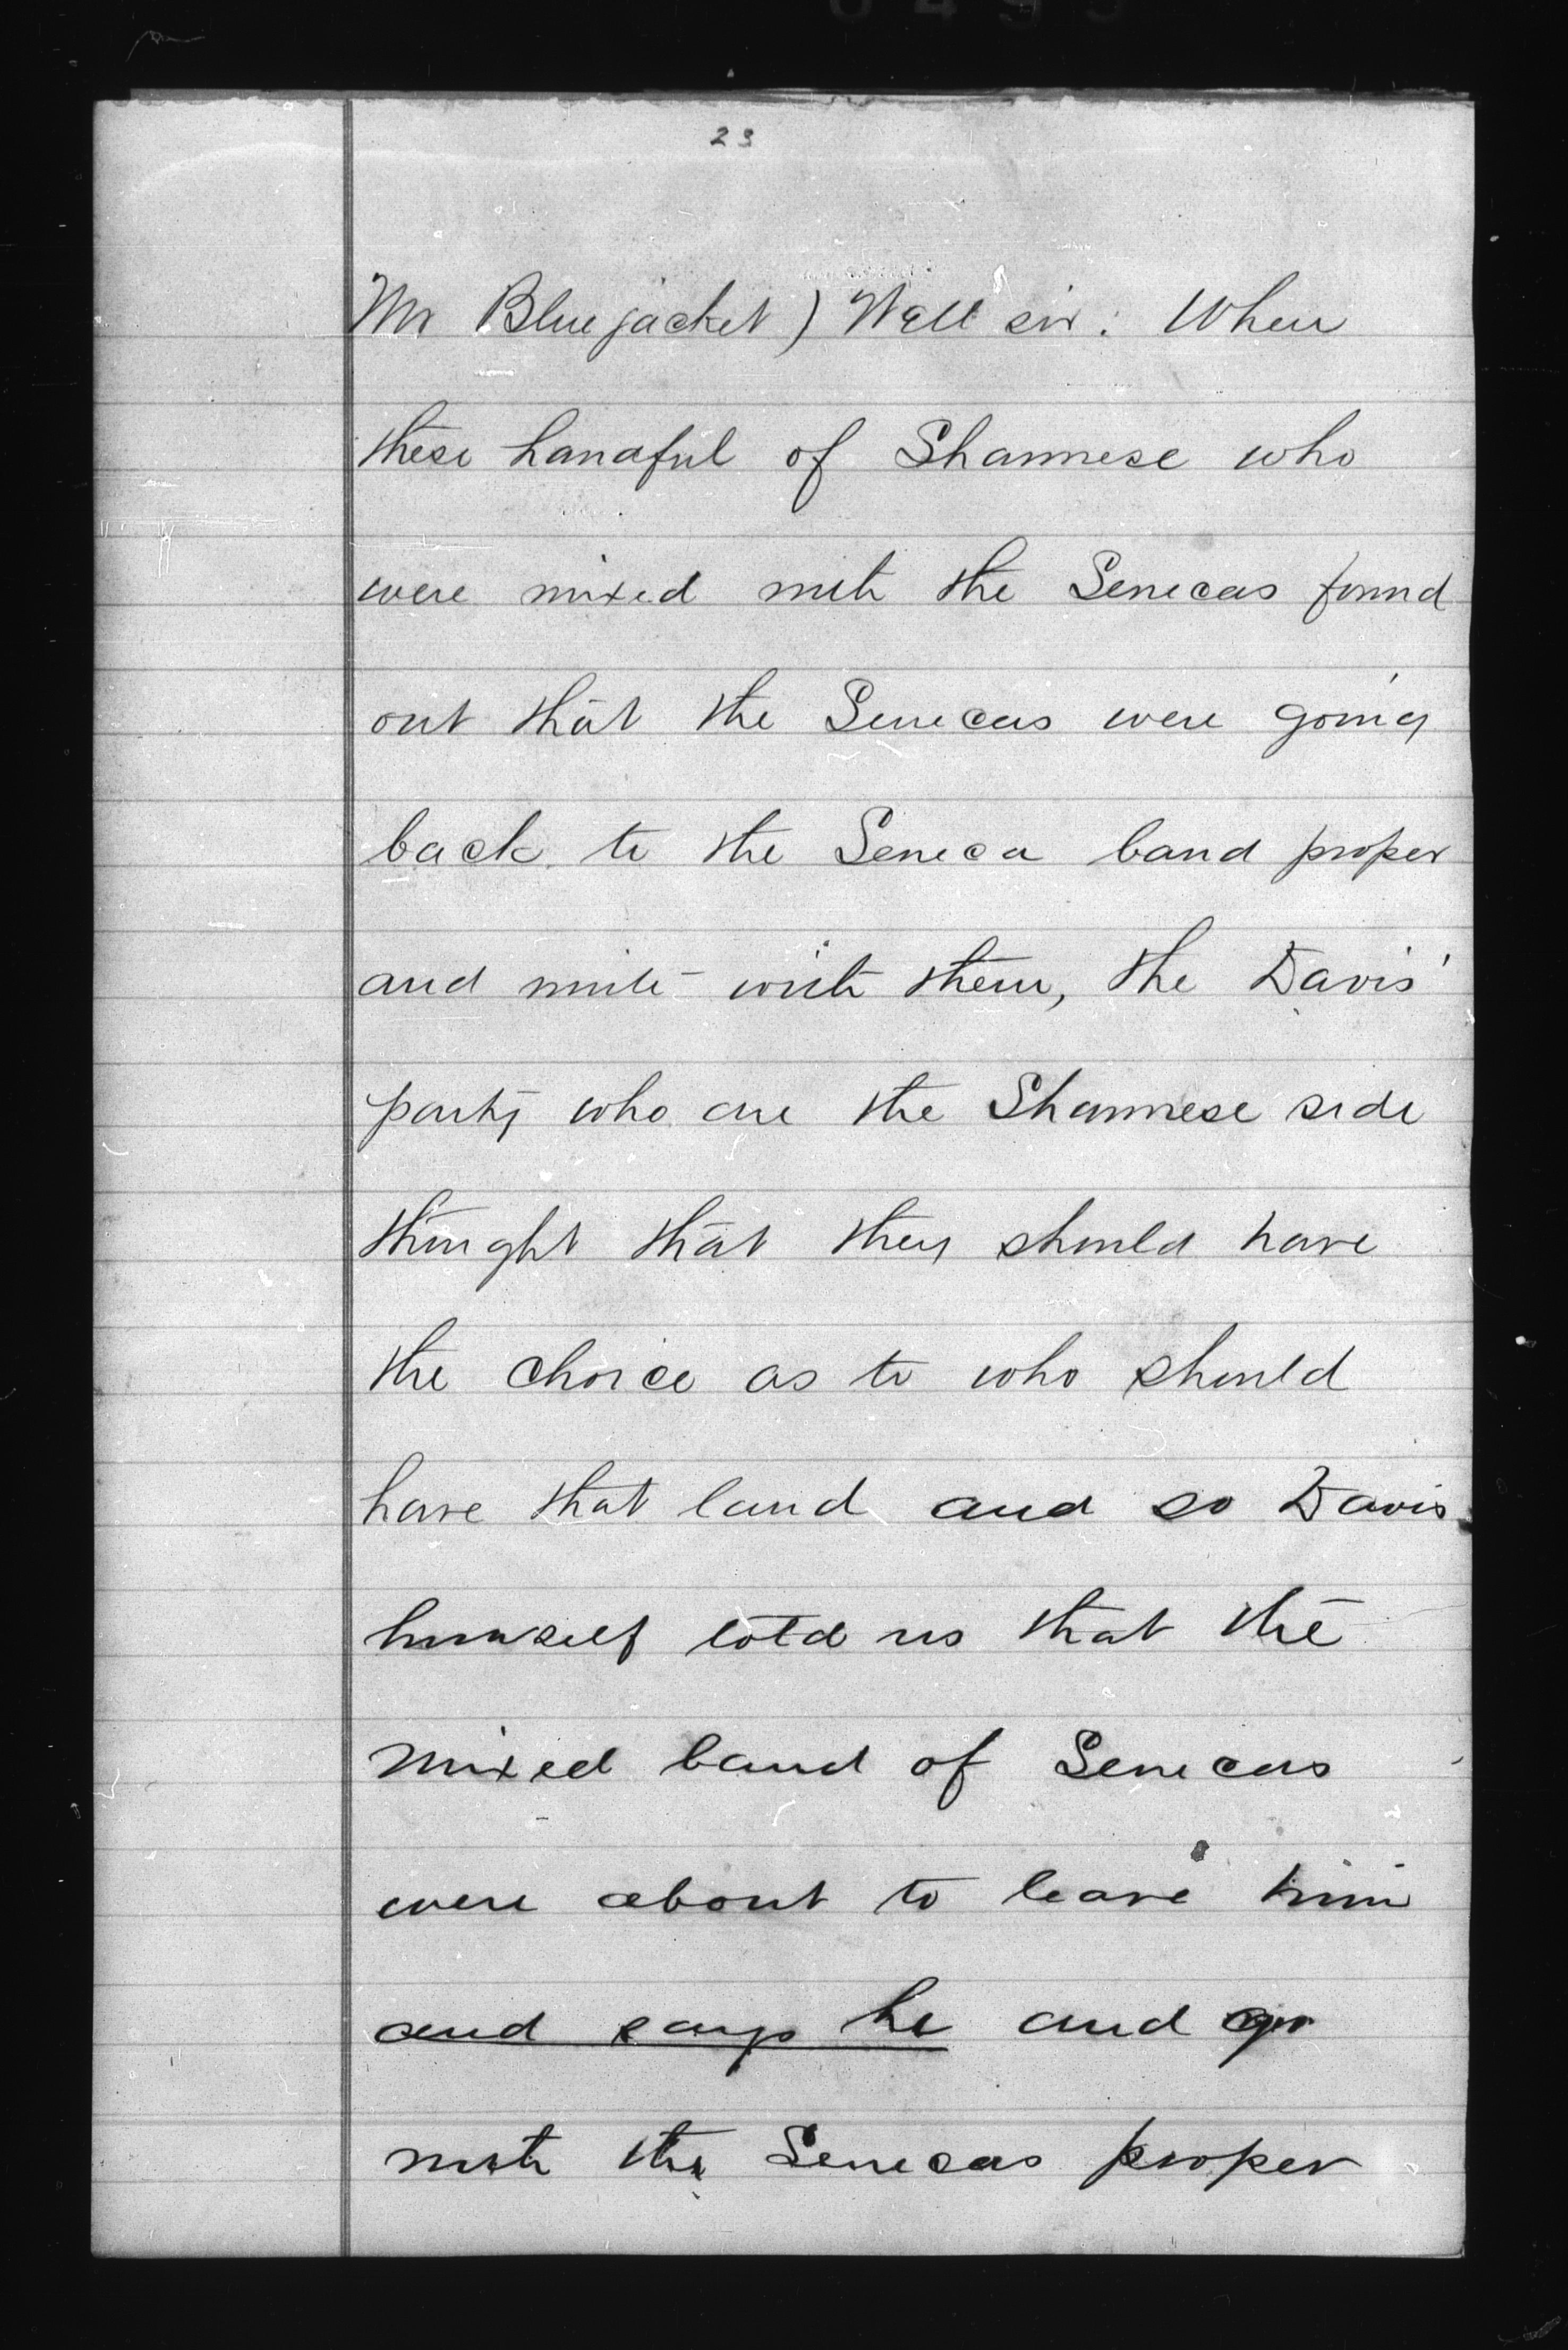 23
Mr Bluejacket) Well sir: When
these handful of Shawnese who
were mixed with the Senecas found
out that the Senecas were going
back to the Seneca band proper
and unite with them, the Davis'
party who are the Shawnese side
thought that they should have
the choice as to who should
have that land and so Davis
himself told us that the
mixed band of Senecas
were about to leave him
and says he and go
with the Senecas proper